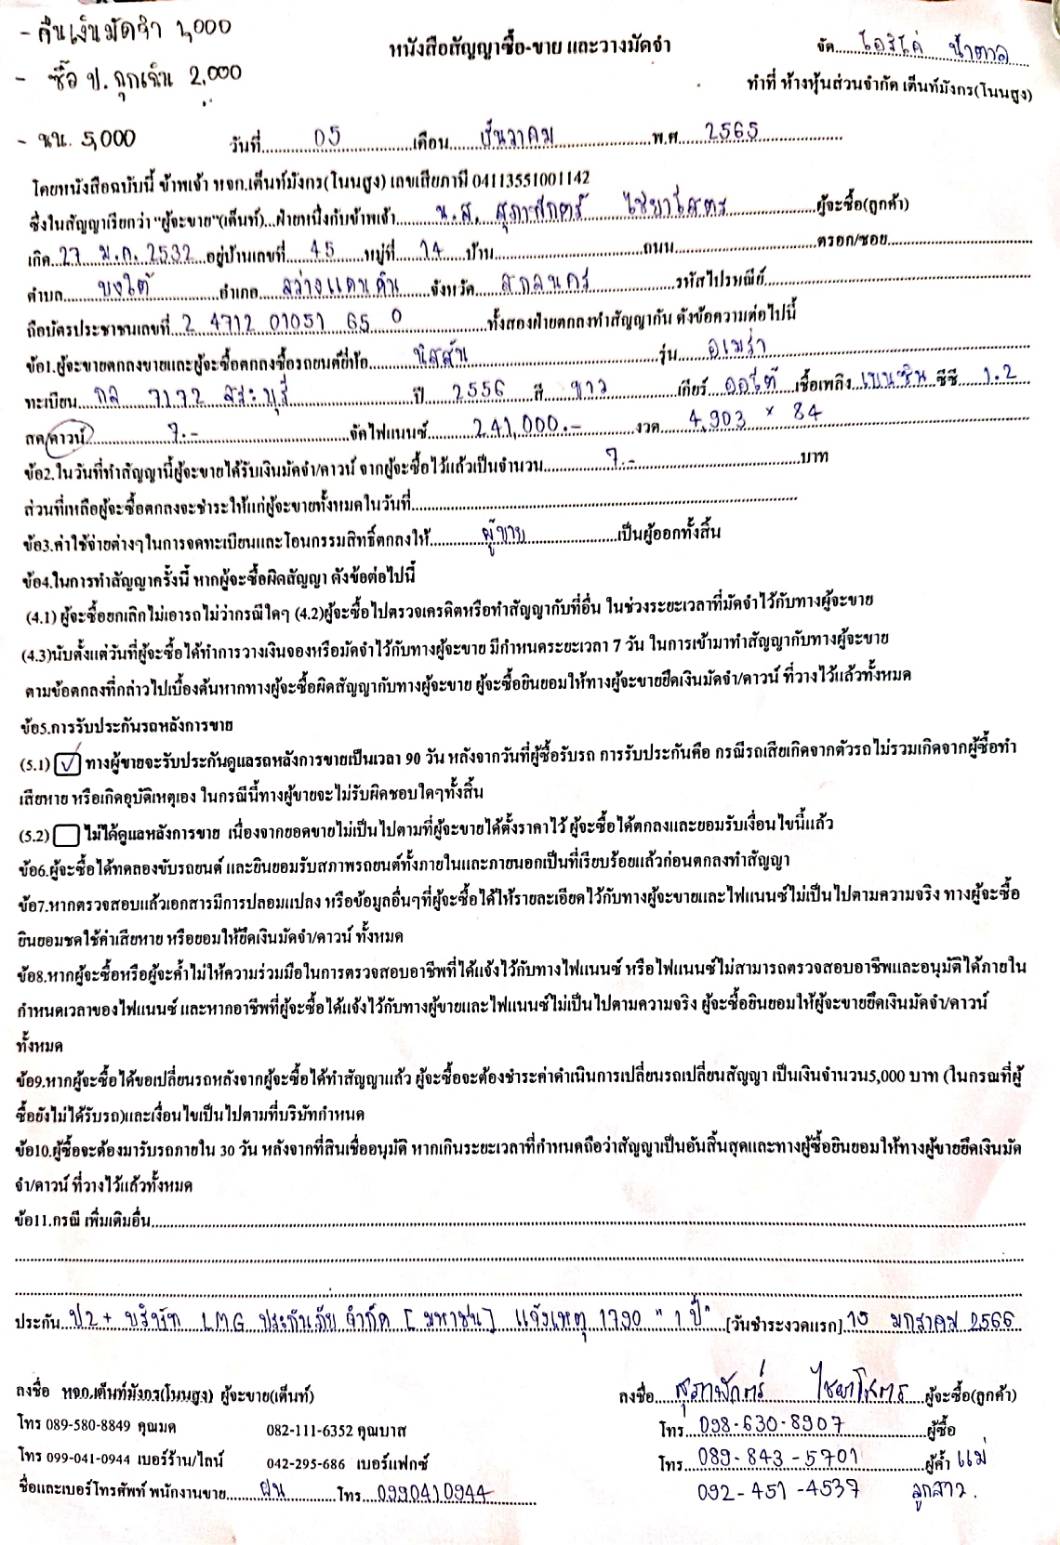 - คืนเงินมัดจำ 1,000
- ซื้อ ป. ฉุกเฉิน 2,000
- นน. 5,000
หนังสือสัญญาซื้อ-ขาย และวางมัดจำ
จัด.....ไอริโค่ น้ำตาล
ทำที่ ห้างหุ้นส่วนจำกัด เต็นท์มังกร(โนนสูง)
วันที่.....05.....เดือน.....ธันวาคม.....พ.ศ....2565.....
โดยหนังสือฉบับนี้ ข้าพเจ้า หจก.เต็นท์มังกร(โนนสูง) เลขเสียภาษี 04113551001142
ซึ่งในสัญญาเรียกว่า "ผู้จะขาย"(เต็นท์)...ฝ่ายหนึ่งกับข้าพเจ้า.....น.ส. สุภาพักตร์ ไชยาโสตร.....ผู้จะซื้อ(ลูกค้า)
เกิด..27 ม.ค. 2532..อยู่บ้านเลขที่...45...หมู่ที่...14...บ้าน.....ถนน.....ตรอก/ซอย.....
ตำบล.....บงใต้.....อำเภอ....สว่างแดนดิน....จังหวัด....สกลนคร....รหัสไปรษณีย์.....
ถือบัตรประชาชนเลขที่..2 4712 01051 65 0.....ทั้งสองฝ่ายตกลงทำสัญญากัน ดังข้อความต่อไปนี้
ข้อ1.ผู้จะขายตกลงขายและผู้จะซื้อตกลงซื้อรถยนต์ยี่ห้อ.....นิสสัน.....รุ่น....อเมร่า.....
ทะเบียน...กล 7172 สระบุรี.....ปี...2556...สี...ขาว.....เกียร์...ออโต้...เชื้อเพลิง..เบนซิน..ซีซี...1.2
สด/ดาวน์.....7.-.....จัดไฟแนนซ์.....241,000.-.....งวด...4,903 × 84.....
ข้อ2.ในวันที่ทำสัญญานี้ผู้จะขายได้รับเงินมัดจำ/ดาวน์ จากผู้จะซื้อไว้แล้วเป็นจำนวน.....7.-.....บาท
ส่วนที่เหลือผู้จะซื้อตกลงจะชำระให้แก่ผู้จะขายทั้งหมดในวันที่.....
ข้อ3.ค่าใช้จ่ายต่างๆในการจดทะเบียนและโอนกรรมสิทธิ์ตกลงให้.....ผู้ขาย.....เป็นผู้ออกทั้งสิ้น
ข้อ4.ในการทำสัญญาครั้งนี้ หากผู้จะซื้อผิดสัญญา ดังข้อต่อไปนี้
(4.1) ผู้จะซื้อยกเลิกไม่เอารถไม่ว่ากรณีใดๆ (4.2)ผู้จะซื้อไปตรวจเครดิตหรือทำสัญญากับที่อื่น ในช่วงระยะเวลาที่มัดจำไว้กับทางผู้จะขาย
(4.3)นับตั้งแต่วันที่ผู้จะซื้อได้ทำการวางเงินจองหรือมัดจำไว้กับทางผู้จะขาย มีกำหนดระยะเวลา 7 วัน ในการเข้ามาทำสัญญากับทางผู้จะขาย
ตามข้อตกลงที่กล่าวไปเบื้องต้นหากทางผู้จะซื้อผิดสัญญากับทางผู้จะขาย ผู้จะซื้อยินยอมให้ทางผู้จะขายยึดเงินมัดจำ/ดาวน์ ที่วางไว้แล้วทั้งหมด
ข้อ5.การรับประกันรถหลังการขาย
(5.1) ☑ ทางผู้ขายจะรับประกันดูแลรถหลังการขายเป็นเวลา 90 วัน หลังจากวันที่ผู้ซื้อรับรถ การรับประกันคือ กรณีรถเสียเกิดจากตัวรถไม่รวมเกิดจากผู้ซื้อทำ
เสียหาย หรือเกิดอุบัติเหตุเอง ในกรณีนี้ทางผู้ขายจะไม่รับผิดชอบใดๆทั้งสิ้น
(5.2) ☐ ไม่ได้ดูแลหลังการขาย เนื่องจากยอดขายไม่เป็นไปตามที่ผู้จะขายได้ตั้งราคาไว้ ผู้จะซื้อได้ตกลงและยอมรับเงื่อนไขนี้แล้ว
ข้อ6.ผู้จะซื้อได้ทดลองขับรถยนต์ และยินยอมรับสภาพรถยนต์ทั้งภายในและภายนอกเป็นที่เรียบร้อยแล้วก่อนตกลงทำสัญญา
ข้อ7.หากตรวจสอบแล้วเอกสารมีการปลอมแปลง หรือข้อมูลอื่นๆที่ผู้จะซื้อได้ให้รายละเอียดไว้กับทางผู้จะขายและไฟแนนซ์ไม่เป็นไปตามความจริง ทางผู้จะซื้อ
ยินยอมชดใช้ค่าเสียหาย หรือยอมให้ยึดเงินมัดจำ/ดาวน์ ทั้งหมด
ข้อ8.หากผู้จะซื้อหรือผู้จะค้ำไม่ให้ความร่วมมือในการตรวจสอบอาชีพที่ได้แจ้งไว้กับทางไฟแนนซ์ หรือไฟแนนซ์ไม่สามารถตรวจสอบอาชีพและอนุมัติได้ภายใน
กำหนดเวลาของไฟแนนซ์ และหากอาชีพที่ผู้จะซื้อได้แจ้งไว้กับทางผู้ขายและไฟแนนซ์ไม่เป็นไปตามความจริง ผู้จะซื้อยินยอมให้ผู้จะขายยึดเงินมัดจำ/ดาวน์
ทั้งหมด
ข้อ9.หากผู้จะซื้อได้ขอเปลี่ยนรถหลังจากผู้จะซื้อได้ทำสัญญาแล้ว ผู้จะซื้อจะต้องชำระค่าดำเนินการเปลี่ยนรถเปลี่ยนสัญญา เป็นเงินจำนวน5,000 บาท (ในกรณที่ผู้
ซื้อยังไม่ได้รับรถ)และเงื่อนไขเป็นไปตามที่บริษัทกำหนด
ข้อ10.ผู้ซื้อจะต้องมารับรถภายใน 30 วัน หลังจากที่สินเชื่ออนุมัติ หากเกินระยะเวลาที่กำหนดถือว่าสัญญาเป็นอันสิ้นสุดและทางผู้ซื้อยินยอมให้ทางผู้ขายยึดเงินมัด
จำ/ดาวน์ ที่วางไว้แล้วทั้งหมด
ข้อ11.กรณี เพิ่มเติมอื่น.....
ประกัน..ป2+ บริษัท LMG ประกันภัย จำกัด [มหาชน] แจ้งเหตุ 1790 "1 ปี"...[วันชำระงวดแรก].15 มกราคม 2566
ลงชื่อ หจก.เต็นท์มังกร(โนนสูง) ผู้จะขาย(เต็นท์)
ลงชื่อ...สุภาพักตร์ ไชยาโสตร...ผู้จะซื้อ(ลูกค้า)
โทร 089-580-8849 คุณมด
082-111-6352 คุณบาส
โทร...098-630-8907.....ผู้ซื้อ
โทร 099-041-0944 เบอร์ร้าน/ไลน์
042-295-686 เบอร์แฟกซ์
โทร...089-843-5701.....ผู้ค้ำ แม่
ชื่อและเบอร์โทรศัพท์ พนักงานขาย.....ฝน.....โทร...0990410944.....
092-451-4537 ลูกสาว.